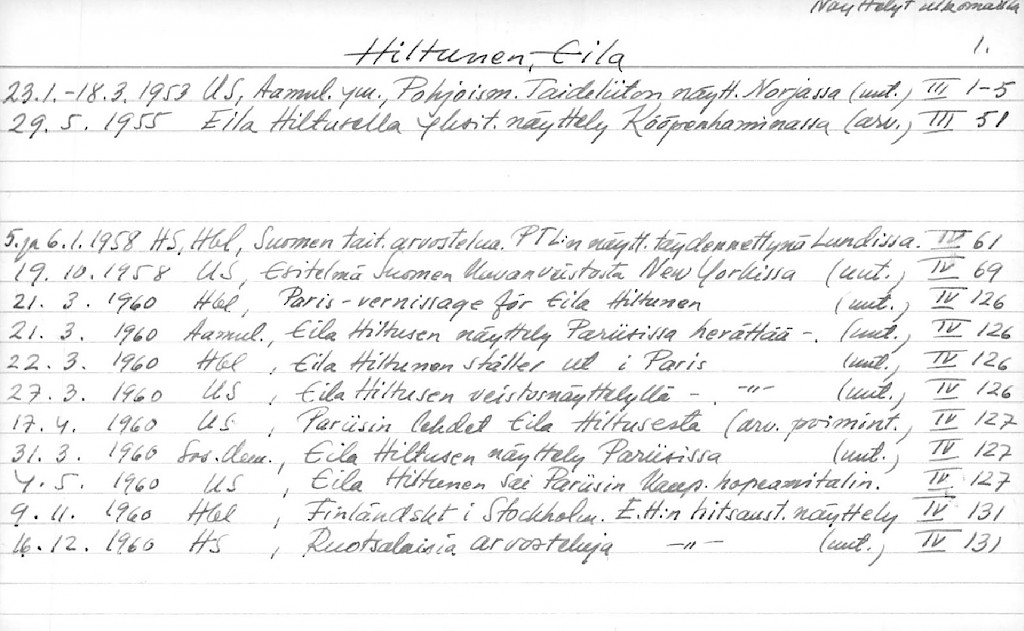 Näyttelyt ulkomailla
1.
Hiltunen, Eila
23.1.-18.3. 1953 US, Aamul. ym., Pohjoism. Taideliiton näytt. Norjassa (uut.) III 1-5
29. 5. 1955 Eila Hiltusella yksit. näyttely Kööpenhaminassa (arv.) III 51
5. ja 6.1.1958 HS, Hbl, Suomen tait. arvostelua. PTL:n näytt. täydennettynä Lundissa. IV 61
19. 10. 1958 US, Esitelmä Suomen kuvanveistosta New Yorkissa (uut.) IV 69
21. 3. 1960 Hbl, Paris-vernissage för Eila Hiltunen (uut.) IV 126
21. 3. 1960 Aamul., Eila Hiltusen näyttely Pariisissa herättää -. (uut.) IV 126
22. 3. 1960 Hbl, Eila Hiltunen ställer ut i Paris (uut.) IV 126
27. 3. 1960 US, Eila Hiltusen veistosnäyttelyllä -. -"- (uut.) IV 126
17. 4. 1960 US, Pariisin lehdet Eila Hiltusesta (arv. poimint.) IV 127
31. 3. 1960 Sos.dem., Eila Hiltusen näyttely Pariisissa (uut.) IV 127
4. 5. 1960 US, Eila Hiltunen sai Pariisin kaup. hopeamitalin. IV 127
9. 11. 1960 Hbl, Finländskt i Stockholm. E.H:n hitsaust. näyttely IV 131
16. 12. 1960 HS, Ruotsalaisia arvosteluja -"- (uut.) IV 131